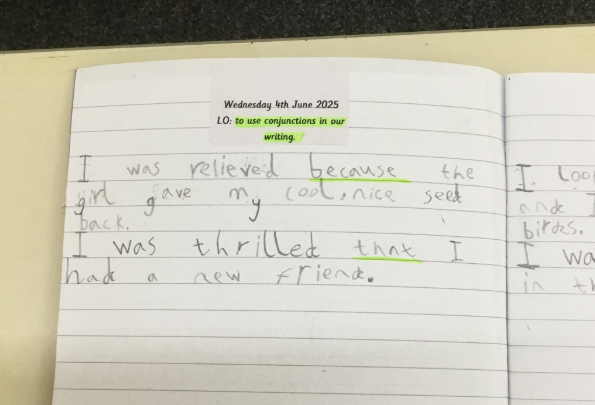 Wednesday 4th June 2025
LO: to use conjunctions in our
writing.
I was relieved because the
girl gave my cool, nice seed
back.
I was thrilled that I
had a new friend.
I
and I
birds.
I
in